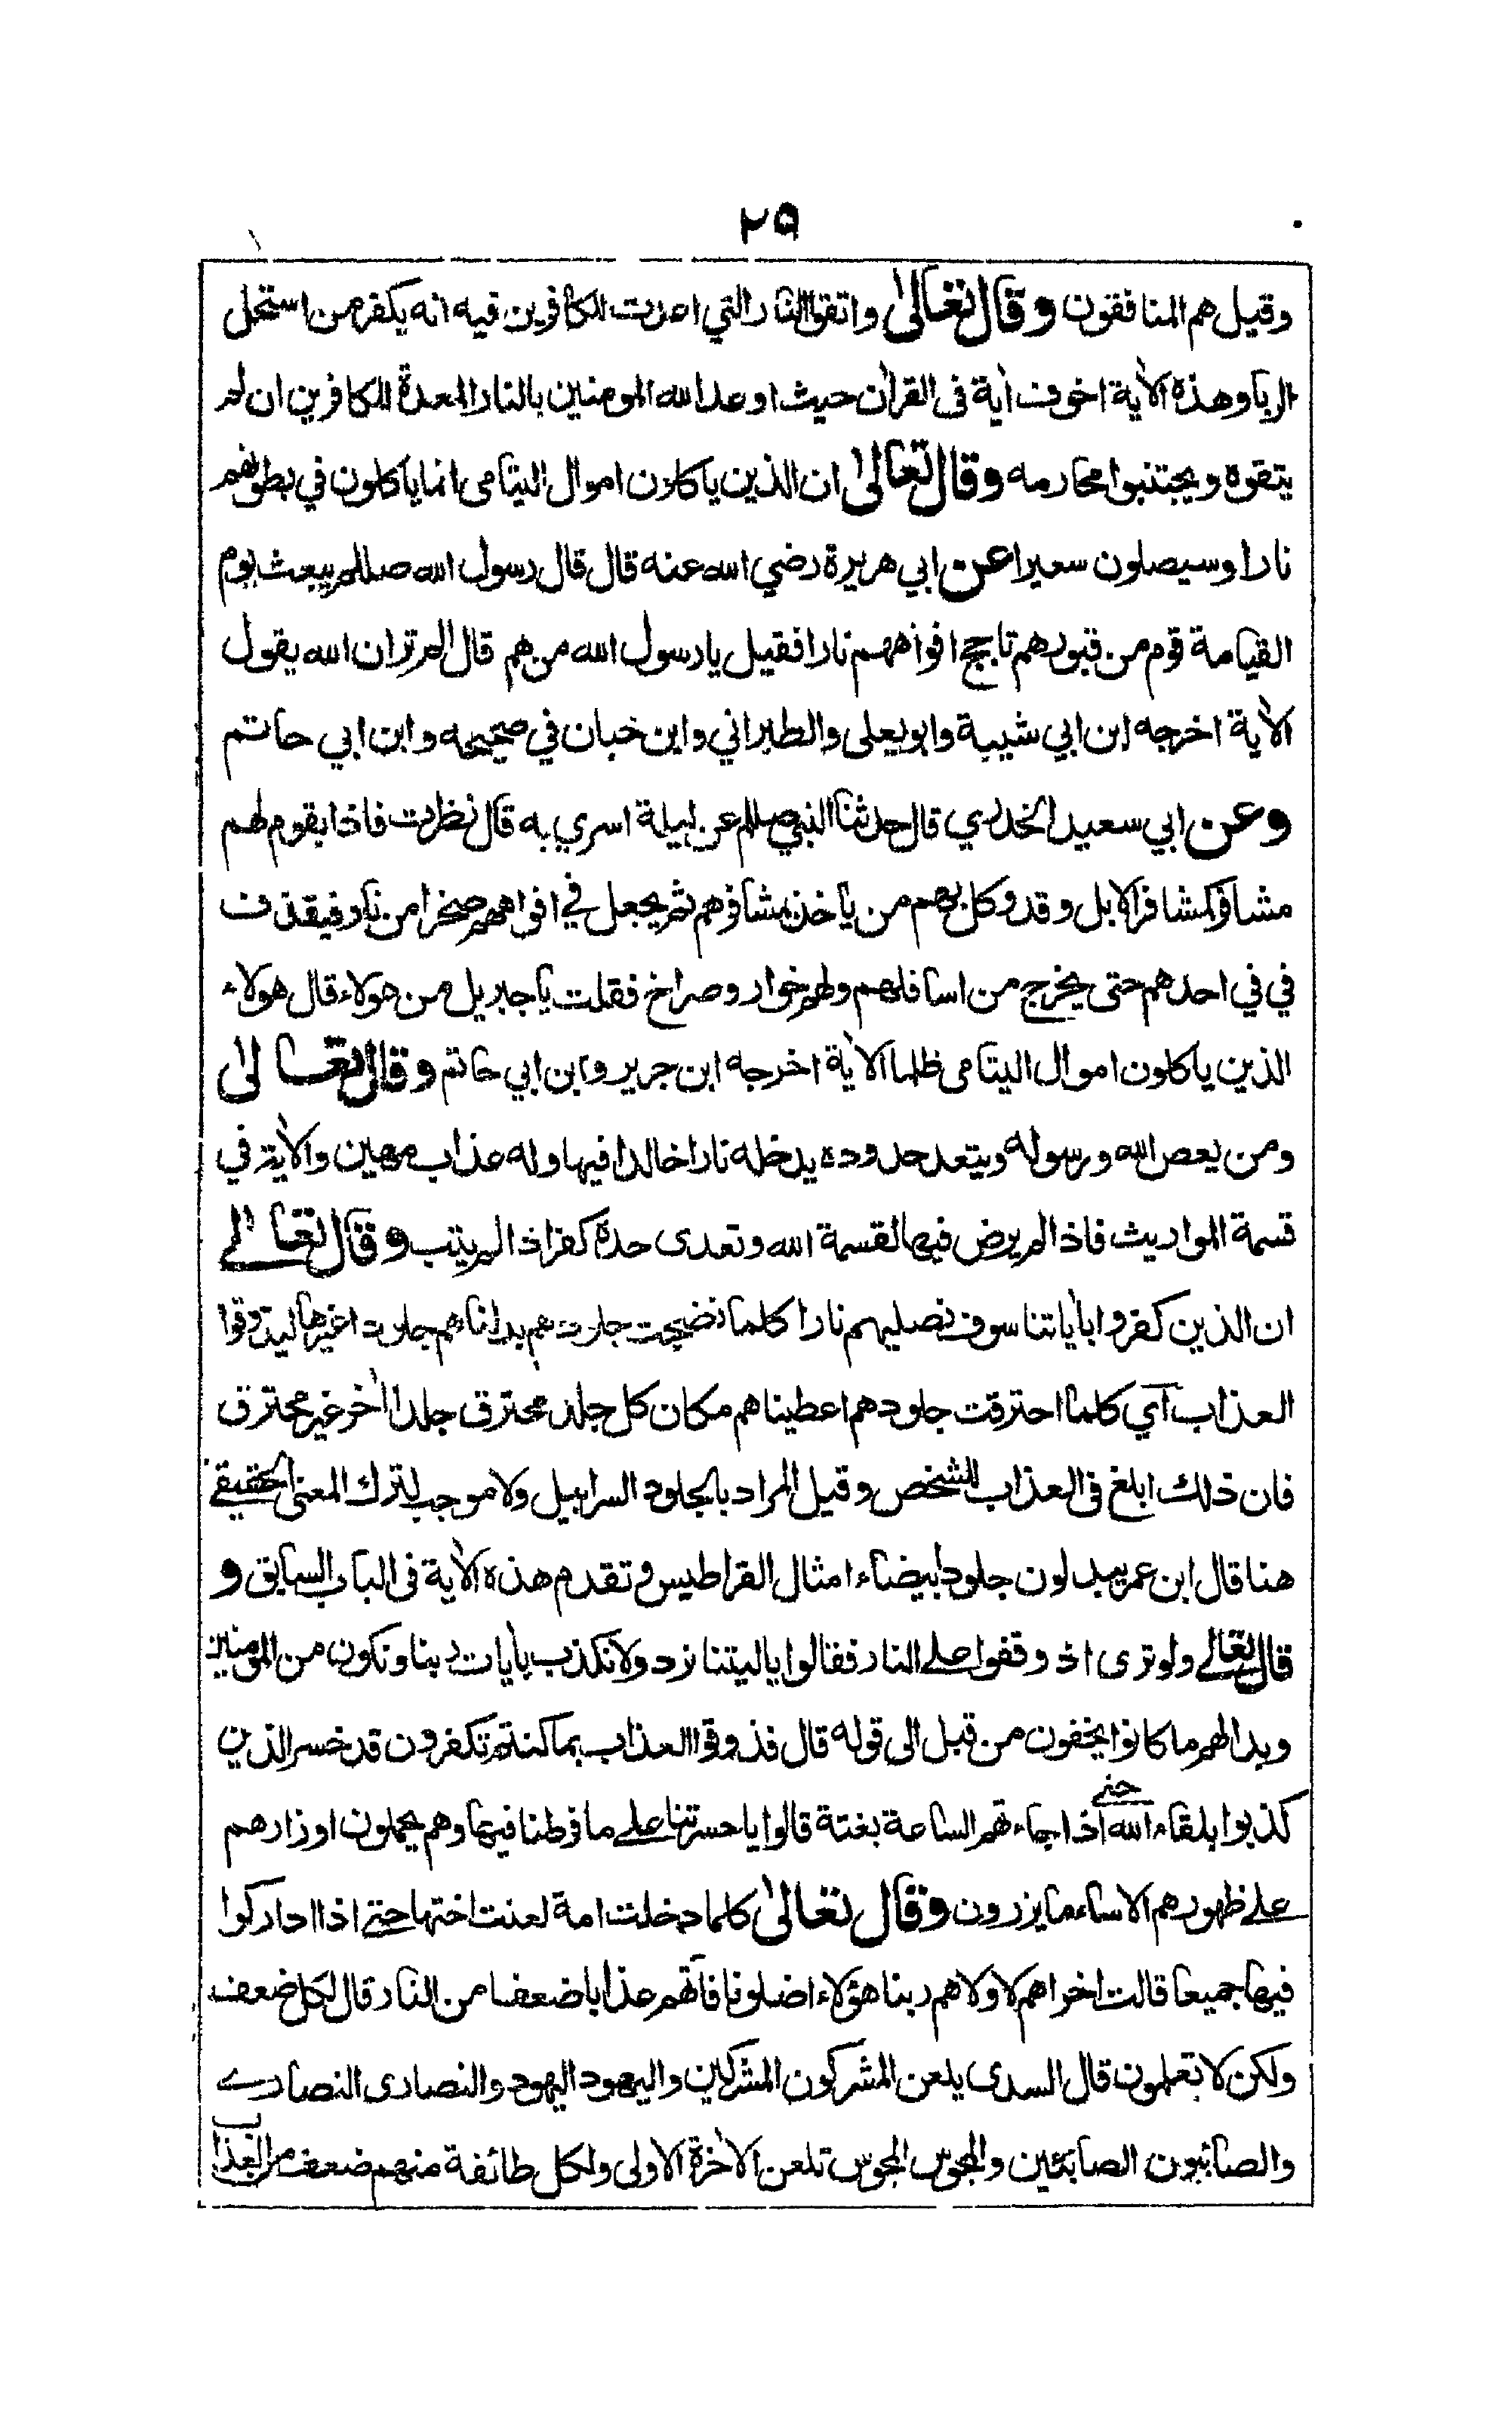 ٢٥
وقيل هم المنافقون وقال تعالى واتقوا النار التي اعدت للكافرين فيه انه يكفر من استحل
الربا وهذه الاٰية اخوف اٰية فى القراٰن حيث اوعد الله المومنين بالنار المعدة للكافرين ان لم
يتقوه ويجتنبوا محارمه وقال تعالى ان الذين ياكلون اموال اليتامى انما ياكلون في بطونهم
نارا وسيصلون سعيرا عن ابي هريرة رضي الله عنه قال قال رسول الله صللم يبعث يوم
القيامة قوم من قبورهم تاجج افواههم نارا فقيل يا رسول الله من هم قال الم تر ان الله يقول
الاٰية اخرجه ابن ابي شيبة وابو يعلى والطبراني وابن حبان في صحيحه وابن ابي حاتم
وعن ابي سعيد الخدري قال حدثنا النبي صللم عن ليلة اسري به قال نظرت فاذا بقوم لهم
مشافر كمشافر الابل وقد وكل بهم من ياخذ بمشافرهم ثم يجعل في افواههم صخرا من نار فيقذف
في في احدهم حتى يخرج من اسافلهم ولهم خوار وصراخ فقلت يا جبريل من هولاء قال هولاء
الذين ياكلون اموال اليتامى ظلما الاٰية اخرجه ابن جرير وابن ابي حاتم وقال تعالى
ومن يعص الله ورسوله ويتعد حدوده يدخله نارا خالدا فيها وله عذاب مهين والاٰية في
قسمة المواريث فاذا لم يرض فيها لقسمة الله وتعدى حده كفر اذا لم يتب وقال تعالے
ان الذين كفروا باٰياتنا سوف نصليهم نارا كلما نضجت جلودهم بدلناهم جلودا غيرها ليذوقوا
العذاب اي كلما احترقت جلودهم اعطيناهم مكان كل جلد محترق جلدا اٰخر غير محترق
فان ذلك ابلغ فى العذاب للشخص وقيل المراد بالجلود السرابيل ولا موجب لترك المعنى الحقيقے
هنا قال ابن عمر يبدلون جلودا بيضاء امثال القراطيس وتقدم هذه الاٰية فى الباب السابق و
قال تعالے ولو ترى اذ وقفوا علے النار فقالوا ياليتنا نرد ولا نكذب باٰيات ربنا ونكون من المومنين
وبدا لهم ما كانوا يخفون من قبل الى قوله قال فذوقوا العذاب بما كنتم تكفرون قد خسر الذين
كذبوا بلقاء الله حتے اذا جاءتهم الساعة بغتة قالوا يا حسرتنا علے ما فرطنا فيها وهم يحملون اوزارهم
علے ظهورهم الا ساء ما يزرون وقال تعالىٰ كلما دخلت امة لعنت اختها حتے اذا اداركوا
فيها جميعا قالت اخراهم لاولاهم ربنا هؤلاء اضلونا فاٰتهم عذابا ضعفا من النار قال لكل ضعف
ولكن لا تعلمون قال السدى يلعن المشركون المشركين واليهود اليهود والنصارى النصارے
والصائبون الصابئين والمجوس المجوس تلعن الاٰخرة الاولى ولكل طائفة منهم ضعف من العذاب